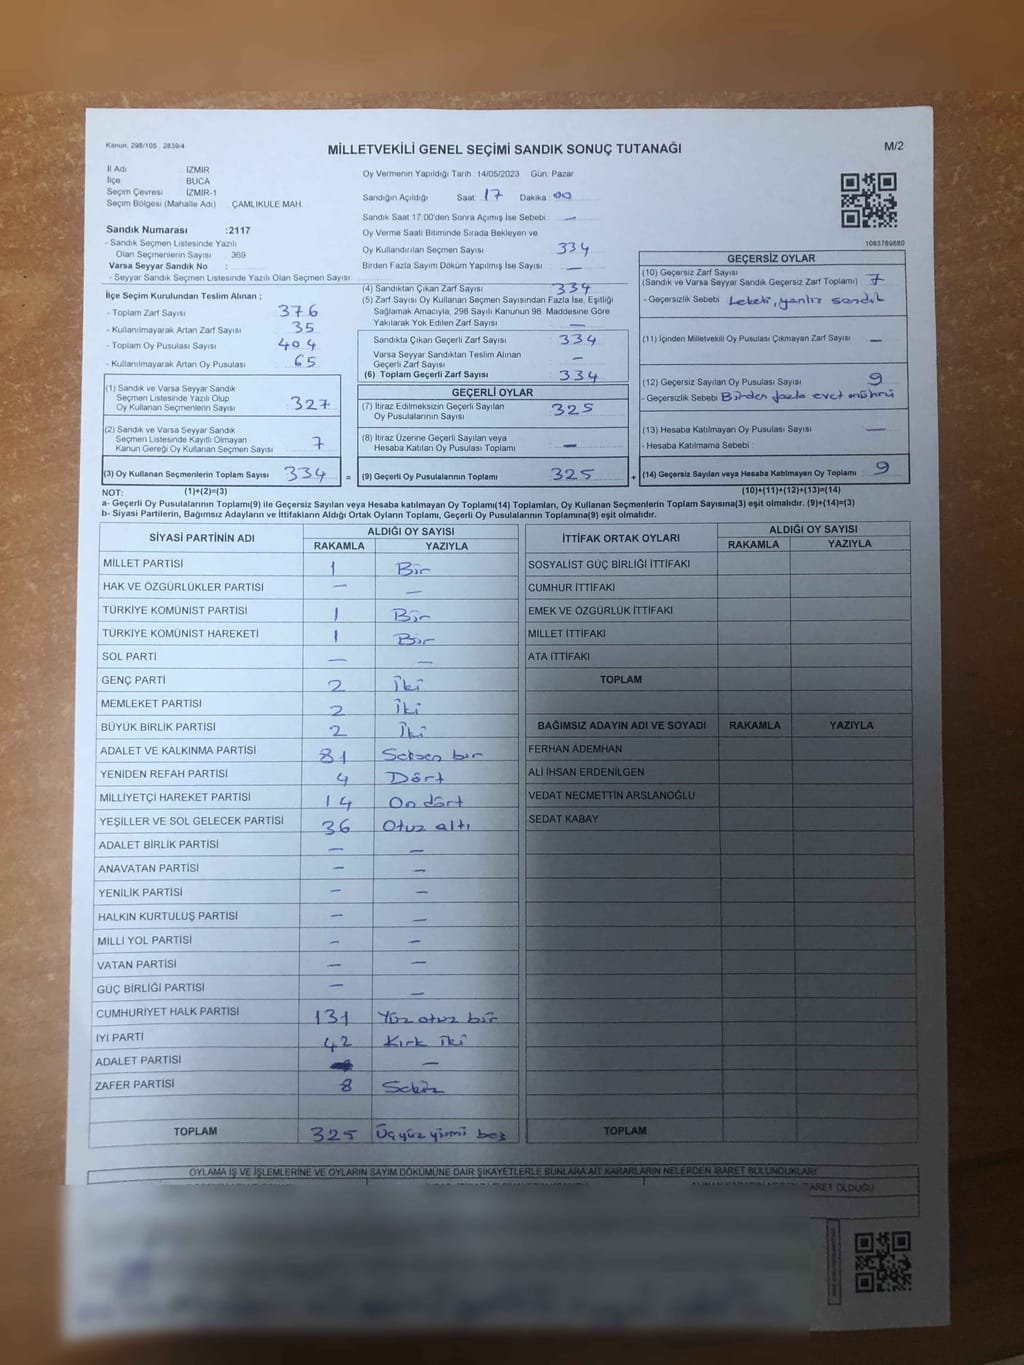 Kanun, 298/105 , 2839/4
MİLLETVEKİLİ GENEL SEÇİMİ SANDIK SONUÇ TUTANAĞI
M/2
İl Adı İZMİR
İlçe BUCA
Seçim Çevresi İZMİR-1
Seçim Bölgesi (Mahalle Adı) ÇAMLIKULE MAH.
Sandık Numarası :2117
- Sandık Seçmen Listesinde Yazılı
Olan Seçmenlerin Sayısı : 369
Varsa Seyyar Sandık No :
- Seyyar Sandık Seçmen Listesinde Yazılı Olan Seçmen Sayısı:
İlçe Seçim Kurulundan Teslim Alınan ;
- Toplam Zarf Sayısı 376
- Kullanılmayarak Artan Zarf Sayısı 35
- Toplam Oy Pusulası Sayısı 404
- Kullanılmayarak Artan Oy Pusulası 65
(1) Sandık ve Varsa Seyyar Sandık
Seçmen Listesinde Yazılı Olup
Oy Kullanan Seçmenlerin Sayısı 327
(2) Sandık ve Varsa Seyyar Sandık
Seçmen Listesinde Kayıtlı Olmayan
Kanun Gereği Oy Kullanan Seçmen Sayısı 7
(3) Oy Kullanan Seçmenlerin Toplam Sayısı 334 =
Oy Vermenin Yapıldığı Tarih : 14/05/2023 Gün: Pazar
Sandığın Açıldığı Saat: 17 Dakika: 00
Sandık Saat 17.00'den Sonra Açılmış İse Sebebi : —
Oy Verme Saati Bitiminde Sırada Bekleyen ve
Oy Kullandırılan Seçmen Sayısı 334
Birden Fazla Sayım Döküm Yapılmış İse Sayısı —
(4) Sandıktan Çıkan Zarf Sayısı 334
(5) Zarf Sayısı Oy Kullanan Seçmen Sayısından Fazla İse, Eşitliği
Sağlamak Amacıyla, 298 Sayılı Kanunun 98. Maddesine Göre
Yakılarak Yok Edilen Zarf Sayısı —
Sandıkta Çıkan Geçerli Zarf Sayısı 334
Varsa Seyyar Sandıktan Teslim Alınan
Geçerli Zarf Sayısı —
(6) Toplam Geçerli Zarf Sayısı 334
GEÇERLİ OYLAR
(7) İtiraz Edilmeksizin Geçerli Sayılan
Oy Pusulalarının Sayısı 325
(8) İtiraz Üzerine Geçerli Sayılan veya
Hesaba Katılan Oy Pusulası Toplamı —
(9) Geçerli Oy Pusulalarının Toplamı 325 +
1083789880
GEÇERSİZ OYLAR
(10) Geçersiz Zarf Sayısı
(Sandık ve Varsa Seyyar Sandık Geçersiz Zarf Toplamı) 7
- Geçersizlik Sebebi : Lekeli, yanlış sandık
(11) İçinden Milletvekili Oy Pusulası Çıkmayan Zarf Sayısı —
(12) Geçersiz Sayılan Oy Pusulası Sayısı 9
- Geçersizlik Sebebi : Birden fazla evet mührü
(13) Hesaba Katılmayan Oy Pusulası Sayısı —
- Hesaba Katılmama Sebebi :
(14) Geçersiz Sayılan veya Hesaba Katılmayan Oy Toplamı 9
NOT: (1)+(2)=(3) (10)+(11)+(12)+(13)=(14)
a- Geçerli Oy Pusulalarının Toplamı(9) ile Geçersiz Sayılan veya Hesaba katılmayan Oy Toplamı(14) Toplamları, Oy Kullanan Seçmenlerin Toplam Sayısına(3) eşit olmalıdır. (9)+(14)=(3)
b- Siyasi Partilerin, Bağımsız Adayların ve İttifakların Aldığı Ortak Oyların Toplamı, Geçerli Oy Pusulalarının Toplamına(9) eşit olmalıdır.
SİYASİ PARTİNİN ADI ALDIĞI OY SAYISI
RAKAMLA YAZIYLA
MİLLET PARTİSİ 1 Bir
HAK VE ÖZGÜRLÜKLER PARTİSİ — —
TÜRKİYE KOMÜNİST PARTİSİ 1 Bir
TÜRKİYE KOMÜNİST HAREKETİ 1 Bir
SOL PARTİ — —
GENÇ PARTİ 2 İki
MEMLEKET PARTİSİ 2 İki
BÜYÜK BİRLİK PARTİSİ 2 İki
ADALET VE KALKINMA PARTİSİ 81 Seksen bir
YENİDEN REFAH PARTİSİ 4 Dört
MİLLİYETÇİ HAREKET PARTİSİ 14 On dört
YEŞİLLER VE SOL GELECEK PARTİSİ 36 Otuz altı
ADALET BİRLİK PARTİSİ — —
ANAVATAN PARTİSİ — —
YENİLİK PARTİSİ — —
HALKIN KURTULUŞ PARTİSİ — —
MİLLİ YOL PARTİSİ — —
VATAN PARTİSİ — —
GÜÇ BİRLİĞİ PARTİSİ — —
CUMHURİYET HALK PARTİSİ 131 Yüz otuz bir
İYİ PARTİ 42 Kırk iki
ADALET PARTİSİ —
ZAFER PARTİSİ 8 Sekiz
TOPLAM 325 Üçyüz yirmi beş
İTTİFAK ORTAK OYLARI ALDIĞI OY SAYISI
RAKAMLA YAZIYLA
SOSYALİST GÜÇ BİRLİĞİ İTTİFAKI
CUMHUR İTTİFAKI
EMEK VE ÖZGÜRLÜK İTTİFAKI
MİLLET İTTİFAKI
ATA İTTİFAKI
TOPLAM
BAĞIMSIZ ADAYIN ADI VE SOYADI RAKAMLA YAZIYLA
FERHAN ADEMHAN
ALİ İHSAN ERDENİLGEN
VEDAT NECMETTİN ARSLANOĞLU
SEDAT KABAY
TOPLAM
OYLAMA İŞ VE İŞLEMLERİNE VE OYLARIN SAYIM DÖKÜMÜNE DAİR ŞİKAYETLERLE BUNLARA AİT KARARLARIN NELERDEN İBARET BULUNDUKLARI